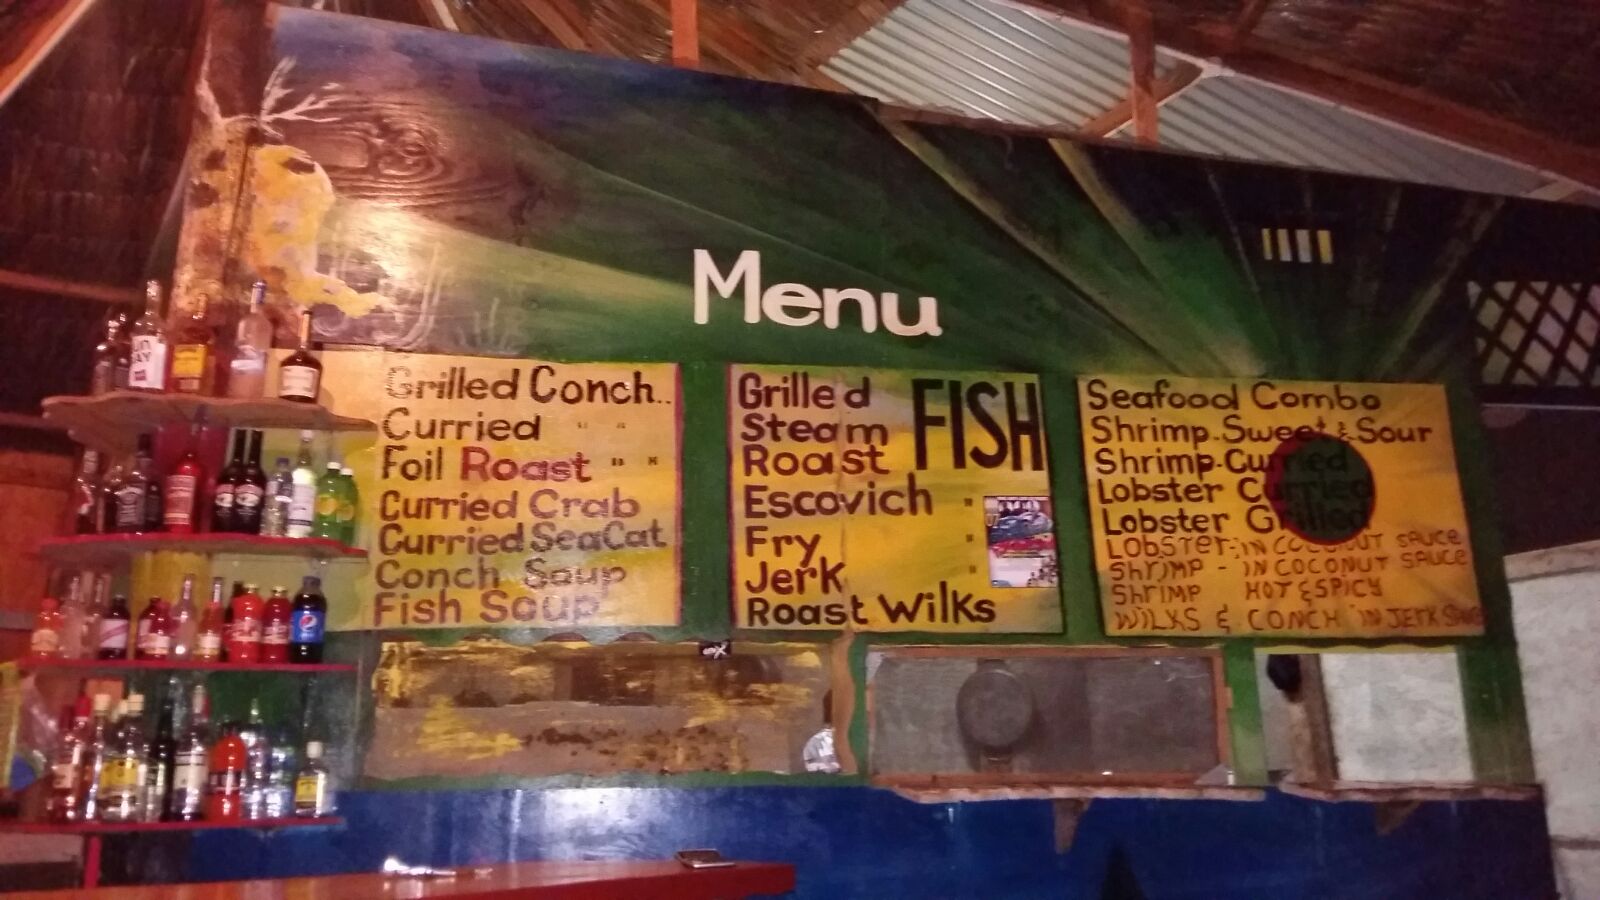 Menu
Grilled Conch..
Curried " "
Foil Roast " "
Curried Crab
Curried SeaCat
Conch Soup
Fish Soup
Grilled
Steam
Roast
FISH
Escovich "
Fry "
Jerk "
Roast Wilks
Seafood Combo
Shrimp-Sweet & Sour
Shrimp-Curried
Lobster Curried
Lobster Grilled
LOBSTER-IN COCONUT SAUCE
SHRIMP - IN COCONUT SAUCE
SHRIMP HOT & SPICY
WILKS & CONCH IN JERK
pepsi